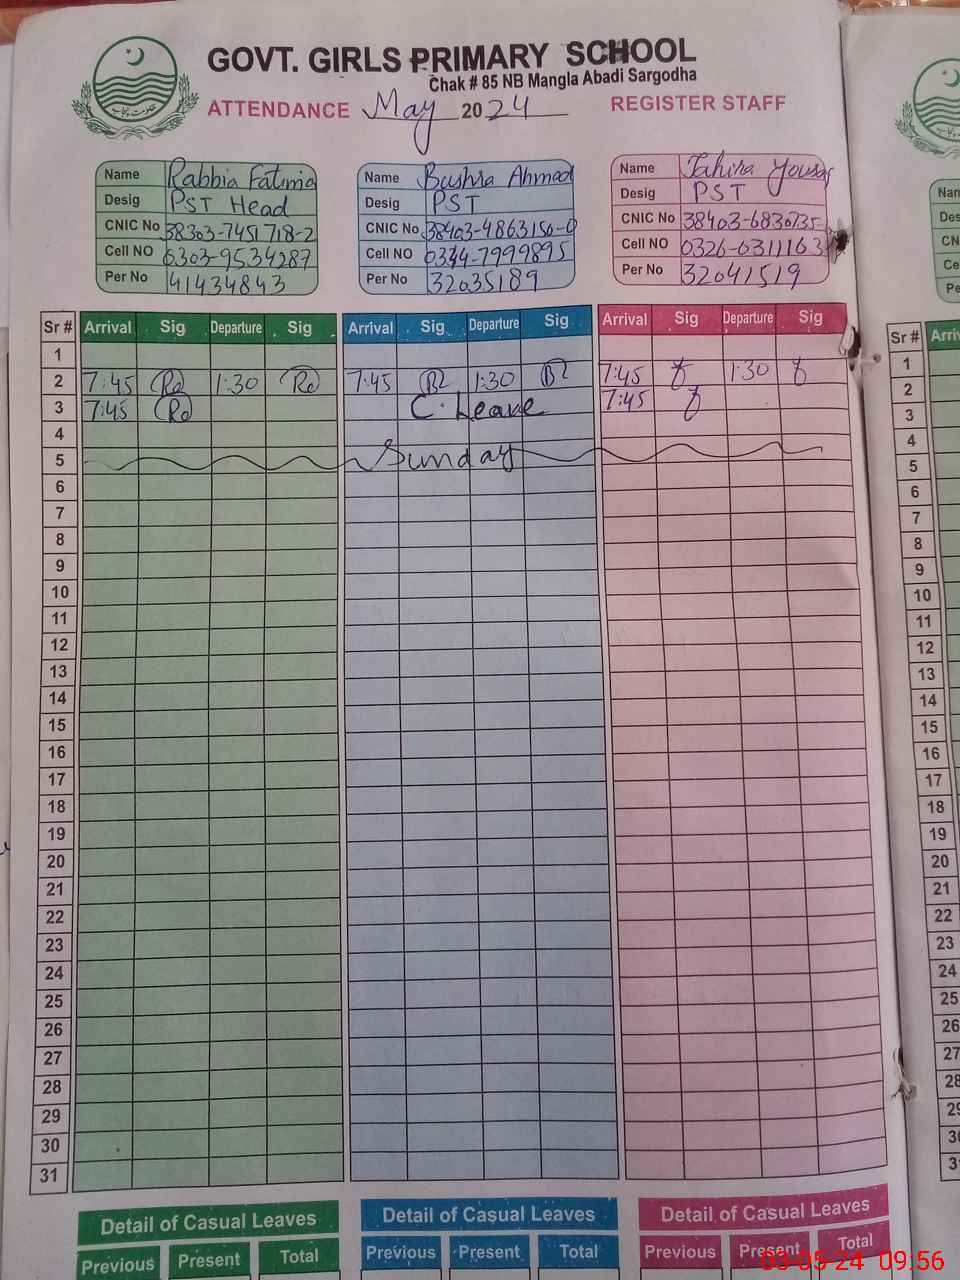 GOVT. GIRLS PRIMARY SCHOOL
Chak # 85 NB Mangla Abadi Sargodha
ATTENDANCE May 2024 REGISTER STAFF
Name Rabbia Fatima
Desig PST Head
CNIC No 38303-7451718-2
Cell NO 0303-9534287
Per No 41434843
Name Bushra Ahmad
Desig PST
CNIC No 38403-4863150-0
Cell NO 0344-7999895
Per No 32035189
Name Tahira Yousaf
Desig PST
CNIC No 38403-6830735-
Cell NO 0326-0311163
Per No 32041519
Sr # Arrival Sig Departure Sig Arrival Sig Departure Sig Arrival Sig Departure Sig
1
2 7:45 1:30 7:45 1:30 7:45 1:30
3 7:45 C. Leave 7:45
4
5 Sunday
6
7
8
9
10
11
12
13
14
15
16
17
18
19
20
21
22
23
24
25
26
27
28
29
30
31
Detail of Casual Leaves Detail of Casual Leaves Detail of Casual Leaves
Previous Present Total Previous Present Total Previous Present Total
Sr # Arri
1
2
3
4
5
6
7
8
9
10
11
12
13
14
15
16
17
18
19
20
21
22
23
24
25
26
27
28
29
03-05-24 09:56